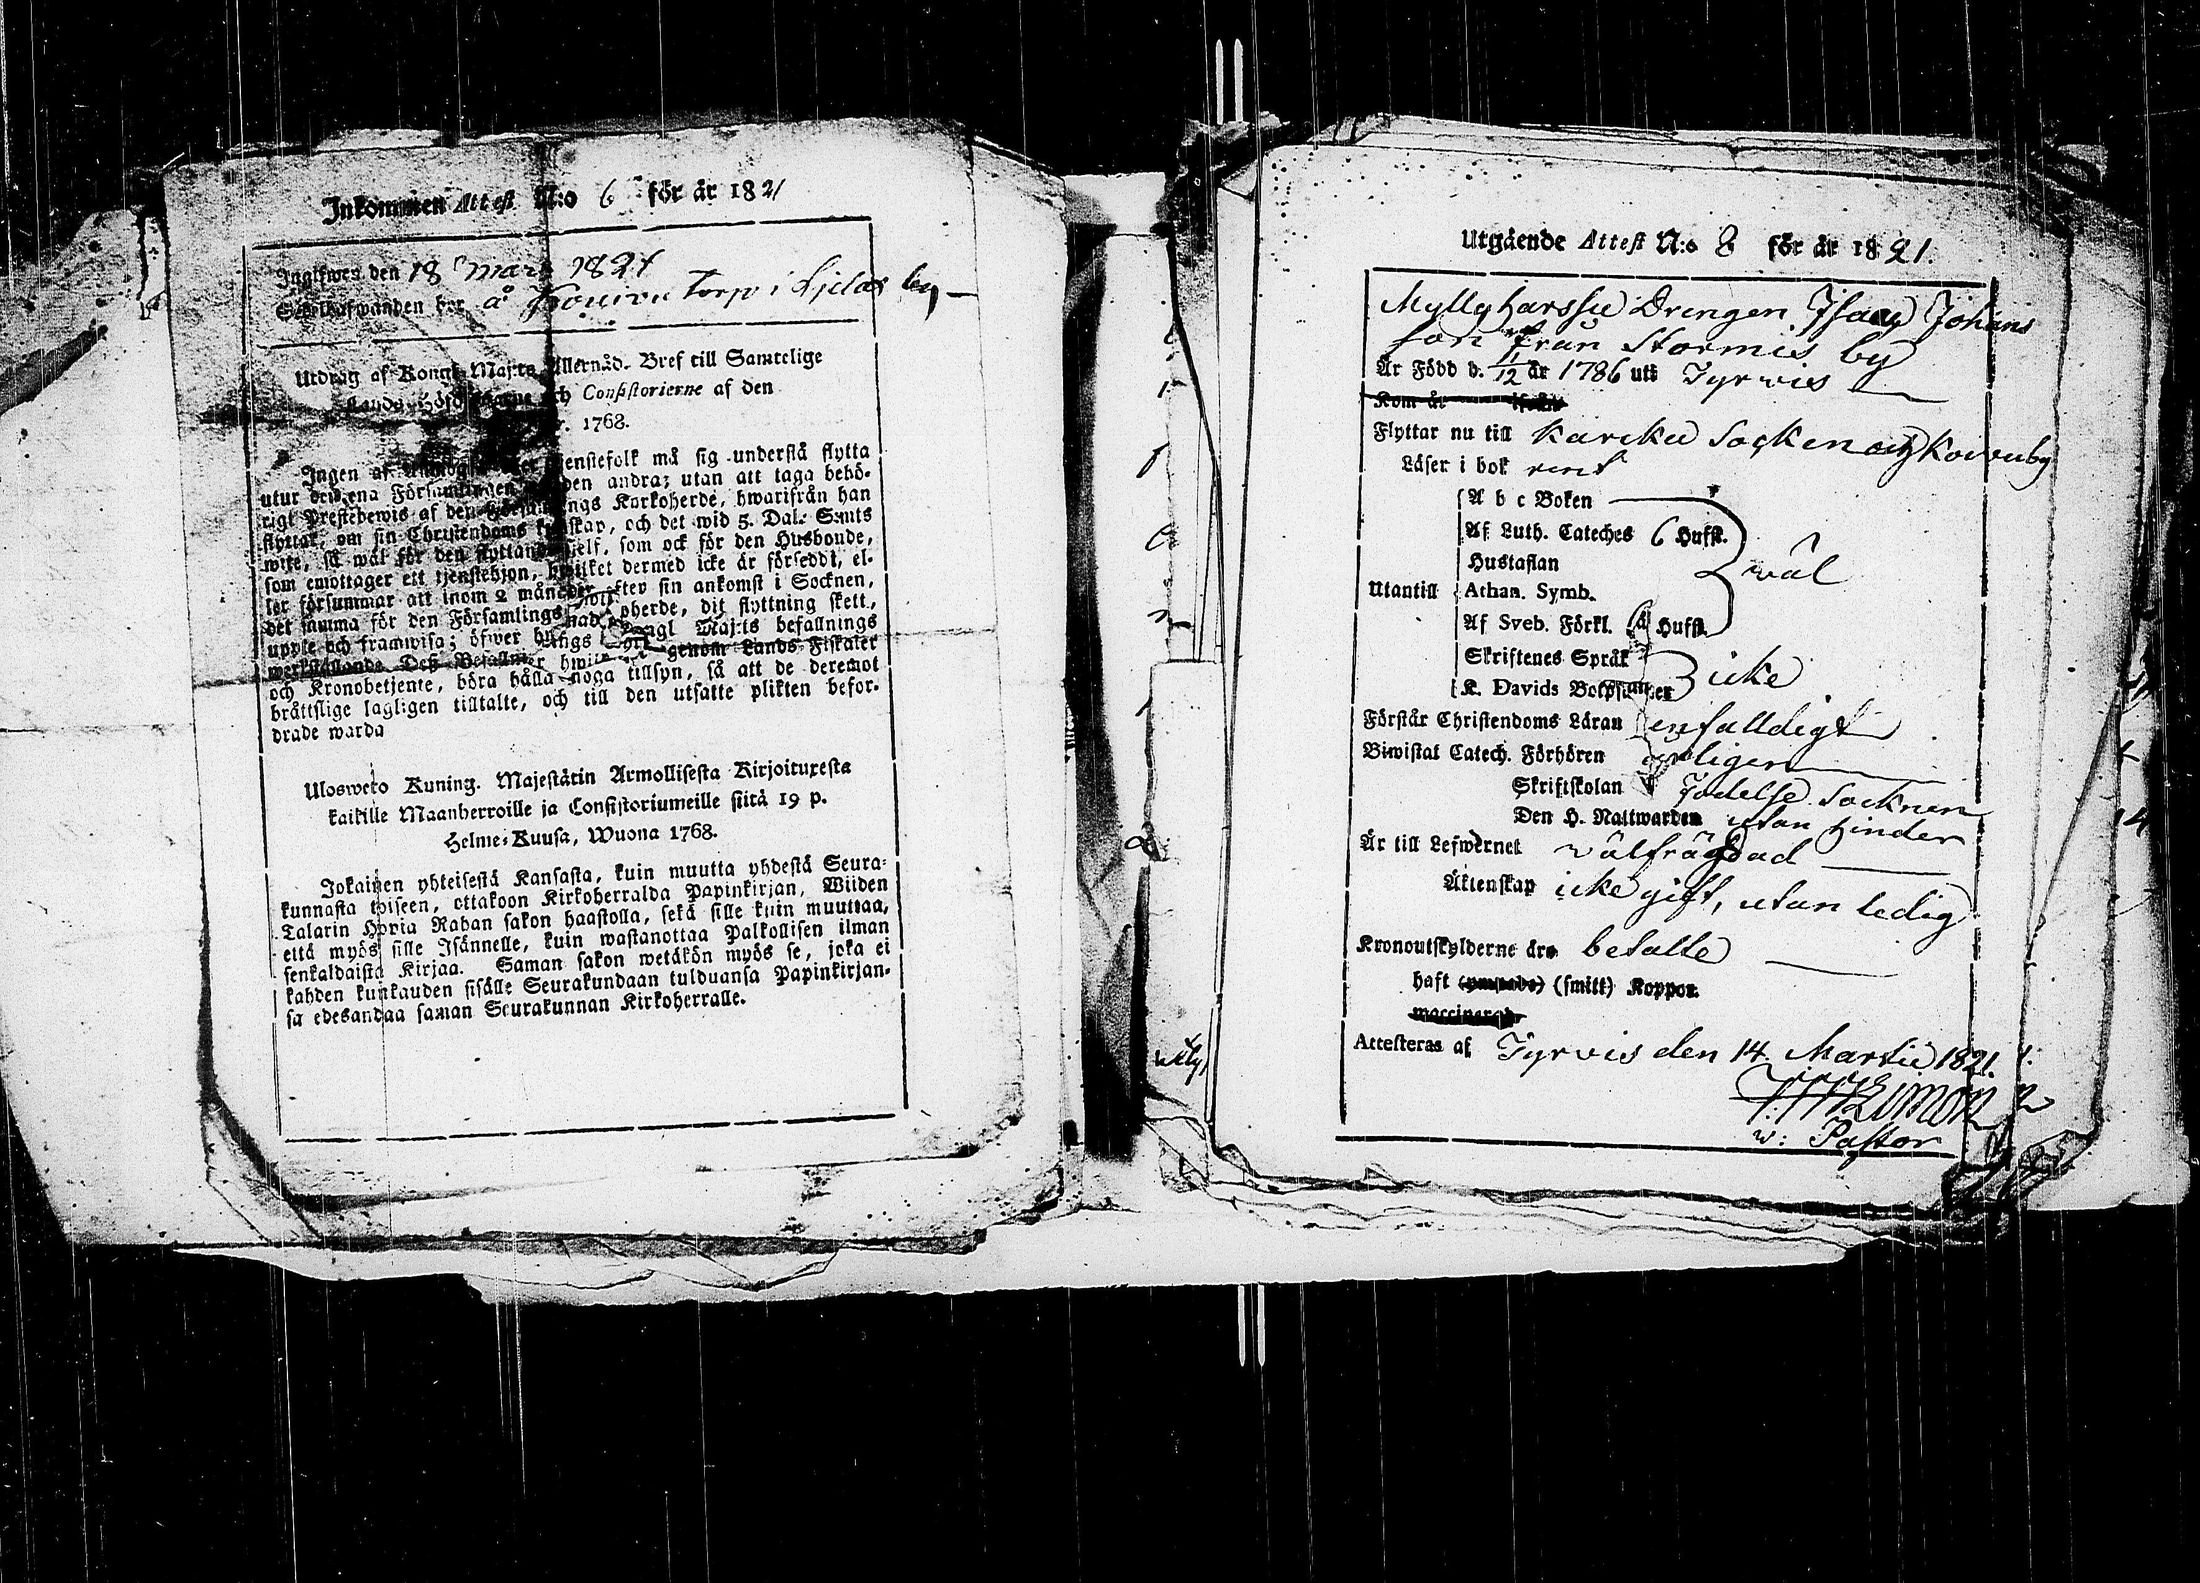 Inkommen Attest N:o 6 för år 1821
Ingifwes den 18 Mars 1821
å Kouvu torp i by
Utdrag af Kongl. Maj:ts Allernåd. Bref till Samtelige
och Consistorierne af den
1768.
Ingen af tjenstefolk må sig understå flytta
utur den ena Församlingen den andra; utan att taga behö-
rigt Prestebewis af den Kyrkoherde, hwarifrån han
flyttar, om sin Christendoms kunskap, och det wid 5. Dal. S:mts
wite, så wäl för den flyttande sjelf, som ock för den Husbonde,
som emottager ett tjenstehjon, hwilket dermed icke är försedt, el-
ler försummar att inom 2 månader efter sin ankomst i Socknen,
det samma för den Församlings Kyrkoherde, dit flyttning skett,
uppte och framwisa; öfwer Kongl Maj:ts befallnings
werkställande Deß Befallningshafwande genom Lands-Fiskaler
och Kronobetjente, böra hålla noga tillsyn, så att de deremot
bråttslige lagligen tilltalte, och till den utsatte plikten befor-
drade warda
Ulosweto Kuning. Majestätin Armollisesta Kirjoituxesta
kaikille Maanherroille ja Consistoriumeille siitä 19 p.
Helme-Kuusa, Wuona 1768.
Jokainen yhteisestä Kansasta, kuin muutta yhdestä Seura-
kunnasta toiseen, ottakoon Kirkoherralda Papinkirjan, Wiiden
Talarin Hopia Rahan sakon haastolla, sekä sille kuin muuttaa,
että myös sille Isännelle, kuin wastanottaa Palkollisen ilman
senkaldaista Kirjaa. Saman sakon wetäkön myös se, joka ei
kahden kuukauden sisälle Seurakundaan tulduansa Papinkirjan-
sa edesandaa saman Seurakunnan Kirkoherralle.
Utgående Attest N:o 8 för år 1821.
Myllyharssu Drengen Isaac Johans
son från Stormis by
Är Född d. 1/12 år 1786 uti Tyrwis
Kom år ifrån
Flyttar nu till Karcku Socken och Kouvu by
Läser i bok rent
A b c Boken
Af Luth. Cateches 6 Hufst.
Hustaflan wäl
Utantill Athan. Symb.
Af Sveb. Förkl. 6 Hufst.
Skriftenes Språk
K. Davids Botpsalmer icke
Förstår Christendoms Läran enfalldigt
Biwistat Catech. Förhören årligen
Skriftskolan Födelse Socknen
Den H. Nattwarden utan hinder
Är till Lefwernet wälfrägdad
Äktenskap icke gift, utan ledig
Kronoutskylderne äro betalte
haft (ympade) (smitt) Koppor.
Attesteras af Tyrvis den 14 Martii 1821.
w: Pastor